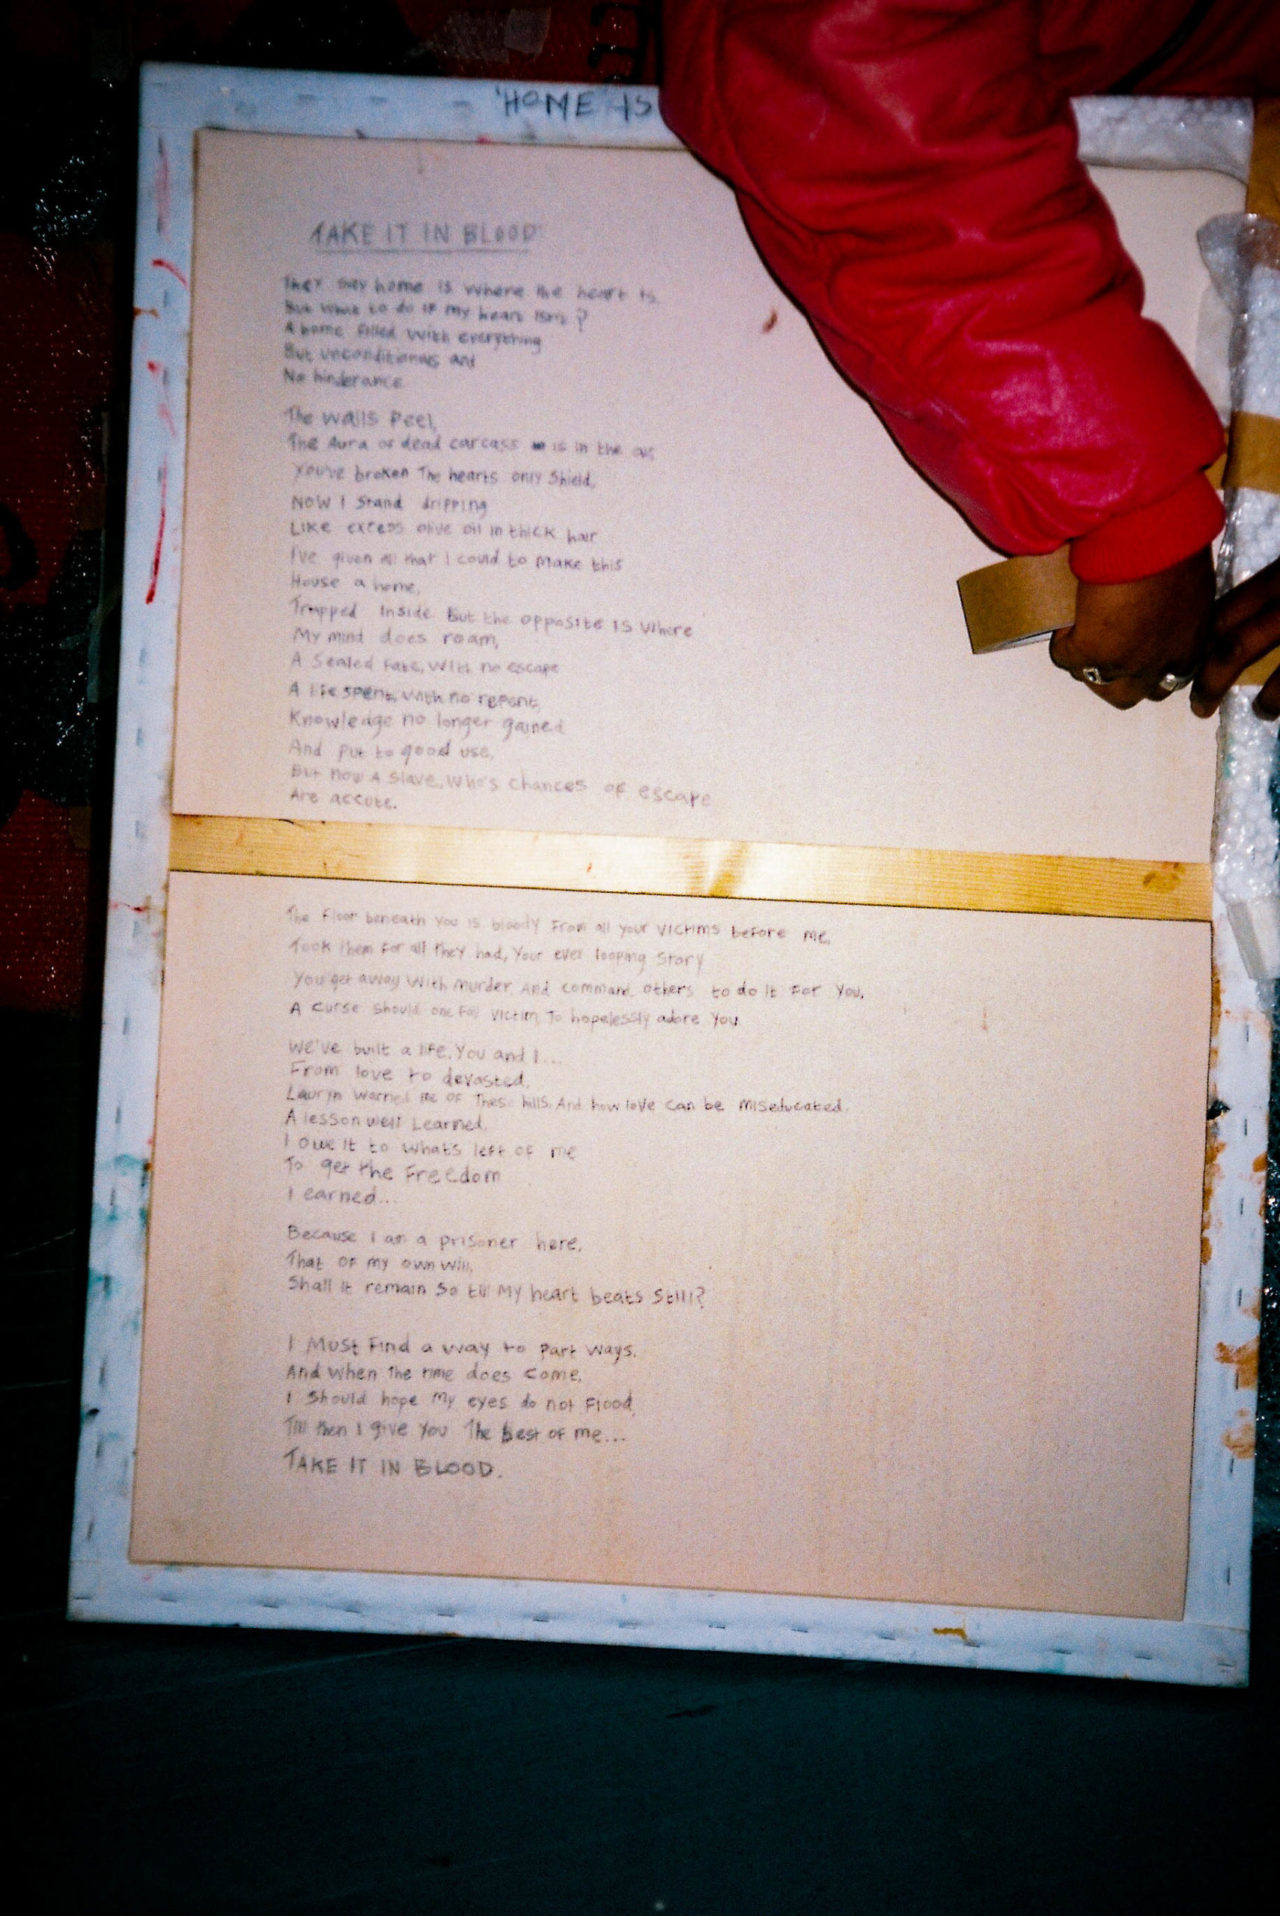 'HOME IS
TAKE IT IN BLOOD
They say home is where the heart is,
But what to do if my heart isnt?
A home filled with everything
But unconditional and
No hinderance
The walls peel,
The Aura of dead carcass is in the air,
You've broken The hearts only shield,
NOW I stand dripping
Like excess olive oil in thick hair
I've given all that I could to make this
House a home,
Trapped inside But the opposite is where
My mind does roam,
A sealed fate, with no escape
A life spent, with no repent,
Knowledge no longer gained
And put to good use,
But now A slave, who's chances of escape
Are accute.
The floor beneath you is bloody from all your victims before me,
Took them for all they had, your ever looping story
You get away with murder And command others to do it for you,
A curse should one fall victim To hopelessly adore you
We've built a life, you and I...
From love to devasted,
Lauryn warned me of these hills, And how love can be miseducated.
A lesson well Learned,
I owe it to what's left of me
To get the Freedom
I earned...
Because I am a prisoner here,
That of my own will,
Shall it remain so till My heart beats still?
I Must Find a way to part ways,
And when the time does come,
I should hope My eyes do not flood,
Till then I give you The best of me...
TAKE IT IN BLOOD.